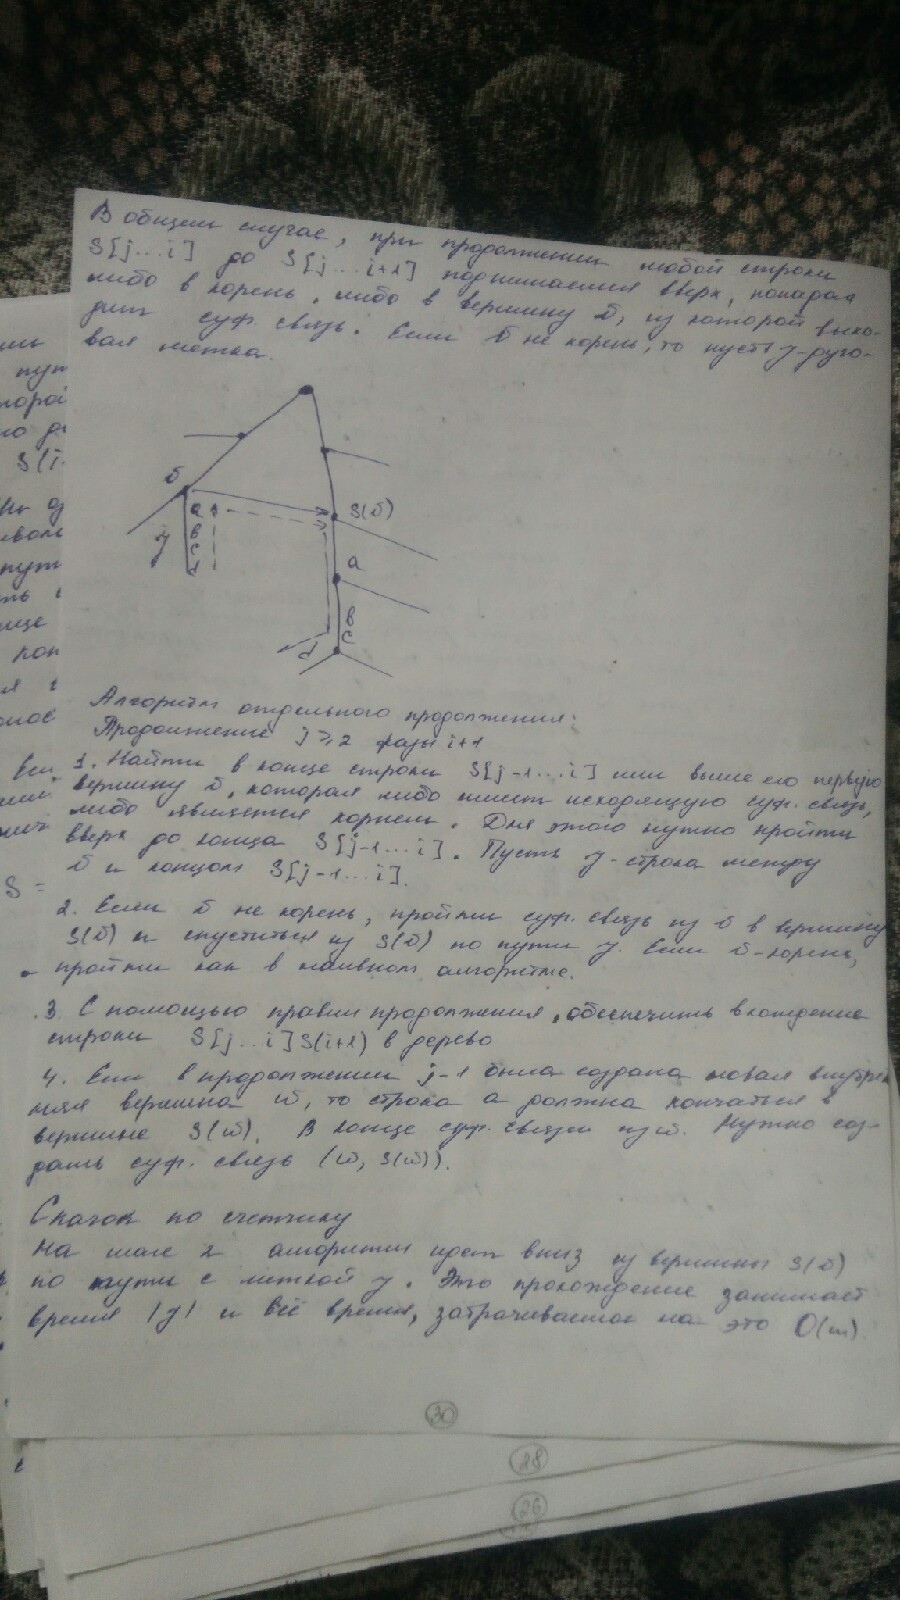 В общем случае, при продолжении любой строки
S[j...i] до S[j...i+1] поднимаемся вверх, попадая
либо в корень, либо в вершину б, из которой выхо-
дит суф. связь. Если б не корень, то пусть y-дуго-
вая метка.
б
S(б)
a
y
в
с
d
a
в
с
d
Алгоритм отдельного продолжения:
Продолжение j≥2 фазы i+1
1. Найти в конце строки S[j-1...i] или выше его первую
вершину б, которая либо имеет исходящую суф. связь,
либо является корнем. Для этого нужно пройти
вверх до конца S[j-1...i]. Пусть y-строка между
б и концом S[j-1...i].
2. Если б не корень, пройти суф. связь из б в вершину
S(б) и спуститься из S(б) по пути y. Если б-корень,
пройти как в наивном алгоритме.
3. С помощью правил продолжения, обеспечить вхождение
строки S[j...i]S(i+1) в дерево
4. Если в продолжении j-1 была создана новая внутрен
няя вершина w, то строка a должна кончаться в
вершине S(w). В конце суф. связи из w. Нужно соз-
дать суф. связь (w, S(w)).
Скачок по счетчику
На шаге 2 алгоритм идет вниз из вершины S(б)
по пути с меткой y. Это прохождение занимает
время |y| и всё время, затрачиваемое на это O(m).
30
28
26